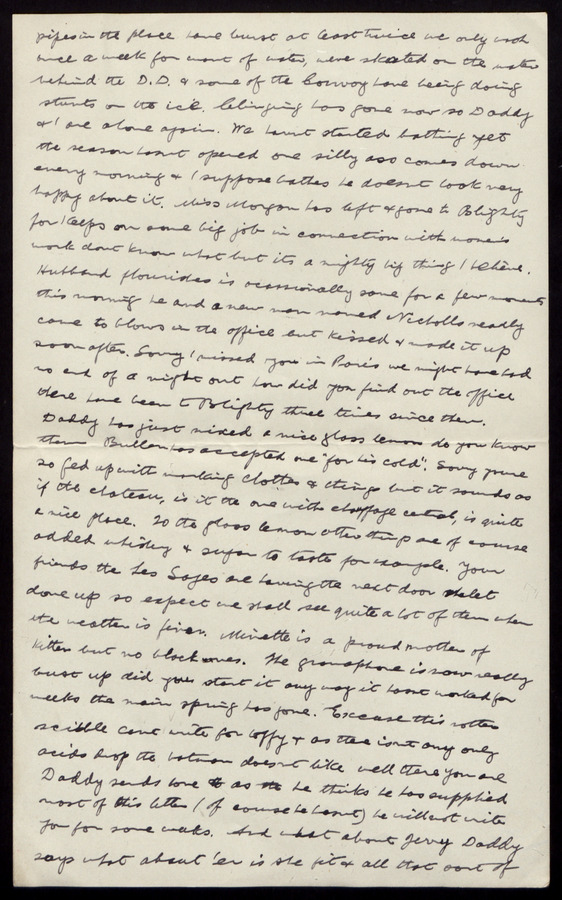 pipes in the place have burst at least twice we only wash
once a week for want of water, were skated on the water
behind the D.D. & some of the Convoy have being doing
stunts on the ice. Clinging has gone now so Daddy
& I are alone again. We havnt started bathing yet
the season hasnt opened one silly ass comes down
every morning & I suppose bathes he doesnt look very
happy about it. Miss Morgan has left & gone to Blighty
for keeps on some big job in connection with women's
work dont know what but its a mighty big thing I believe.
Hubband flourides is occassionally sane for a few moments
this morning he and a new man named Nicholls nearly
came to blows in the office but kissed & made it up
soon after. Sorry I missed you in Paris we might have had
no end of a night out how did you find out the office
there have been to Blighty three times since then.
Daddy has just mixed a nice glass lemon do you know
them Bullen has accepted one "for his cold". Sorry youre
so fed up with marking clothes & things but it sounds as
if the chateau, is it the one with chauffage central, is quite
a nice place. To the glass lemon other things are of course
added whiskey & sugar to taste for example. Your
friends the Les Sages are having the next door chalet
done up so expect we shall see quite a lot of them when
the weather is finer. Minette is a proud mother of
kitten but no black ones. The gramaphone is now really
bust up did you start it any way it hasnt worked for
weeks the main spring has gone. Excuse this rotten
scibble cant write for toffy & as there isnt any only
acids drop the batman doesnt like well there you are
Daddy sends love as he thinks he has supplied
most of this letter (of course he hasnt) he will not write
you for some weeks. And what about Jerry Daddy
says what about 'er is she fit & all that sort of